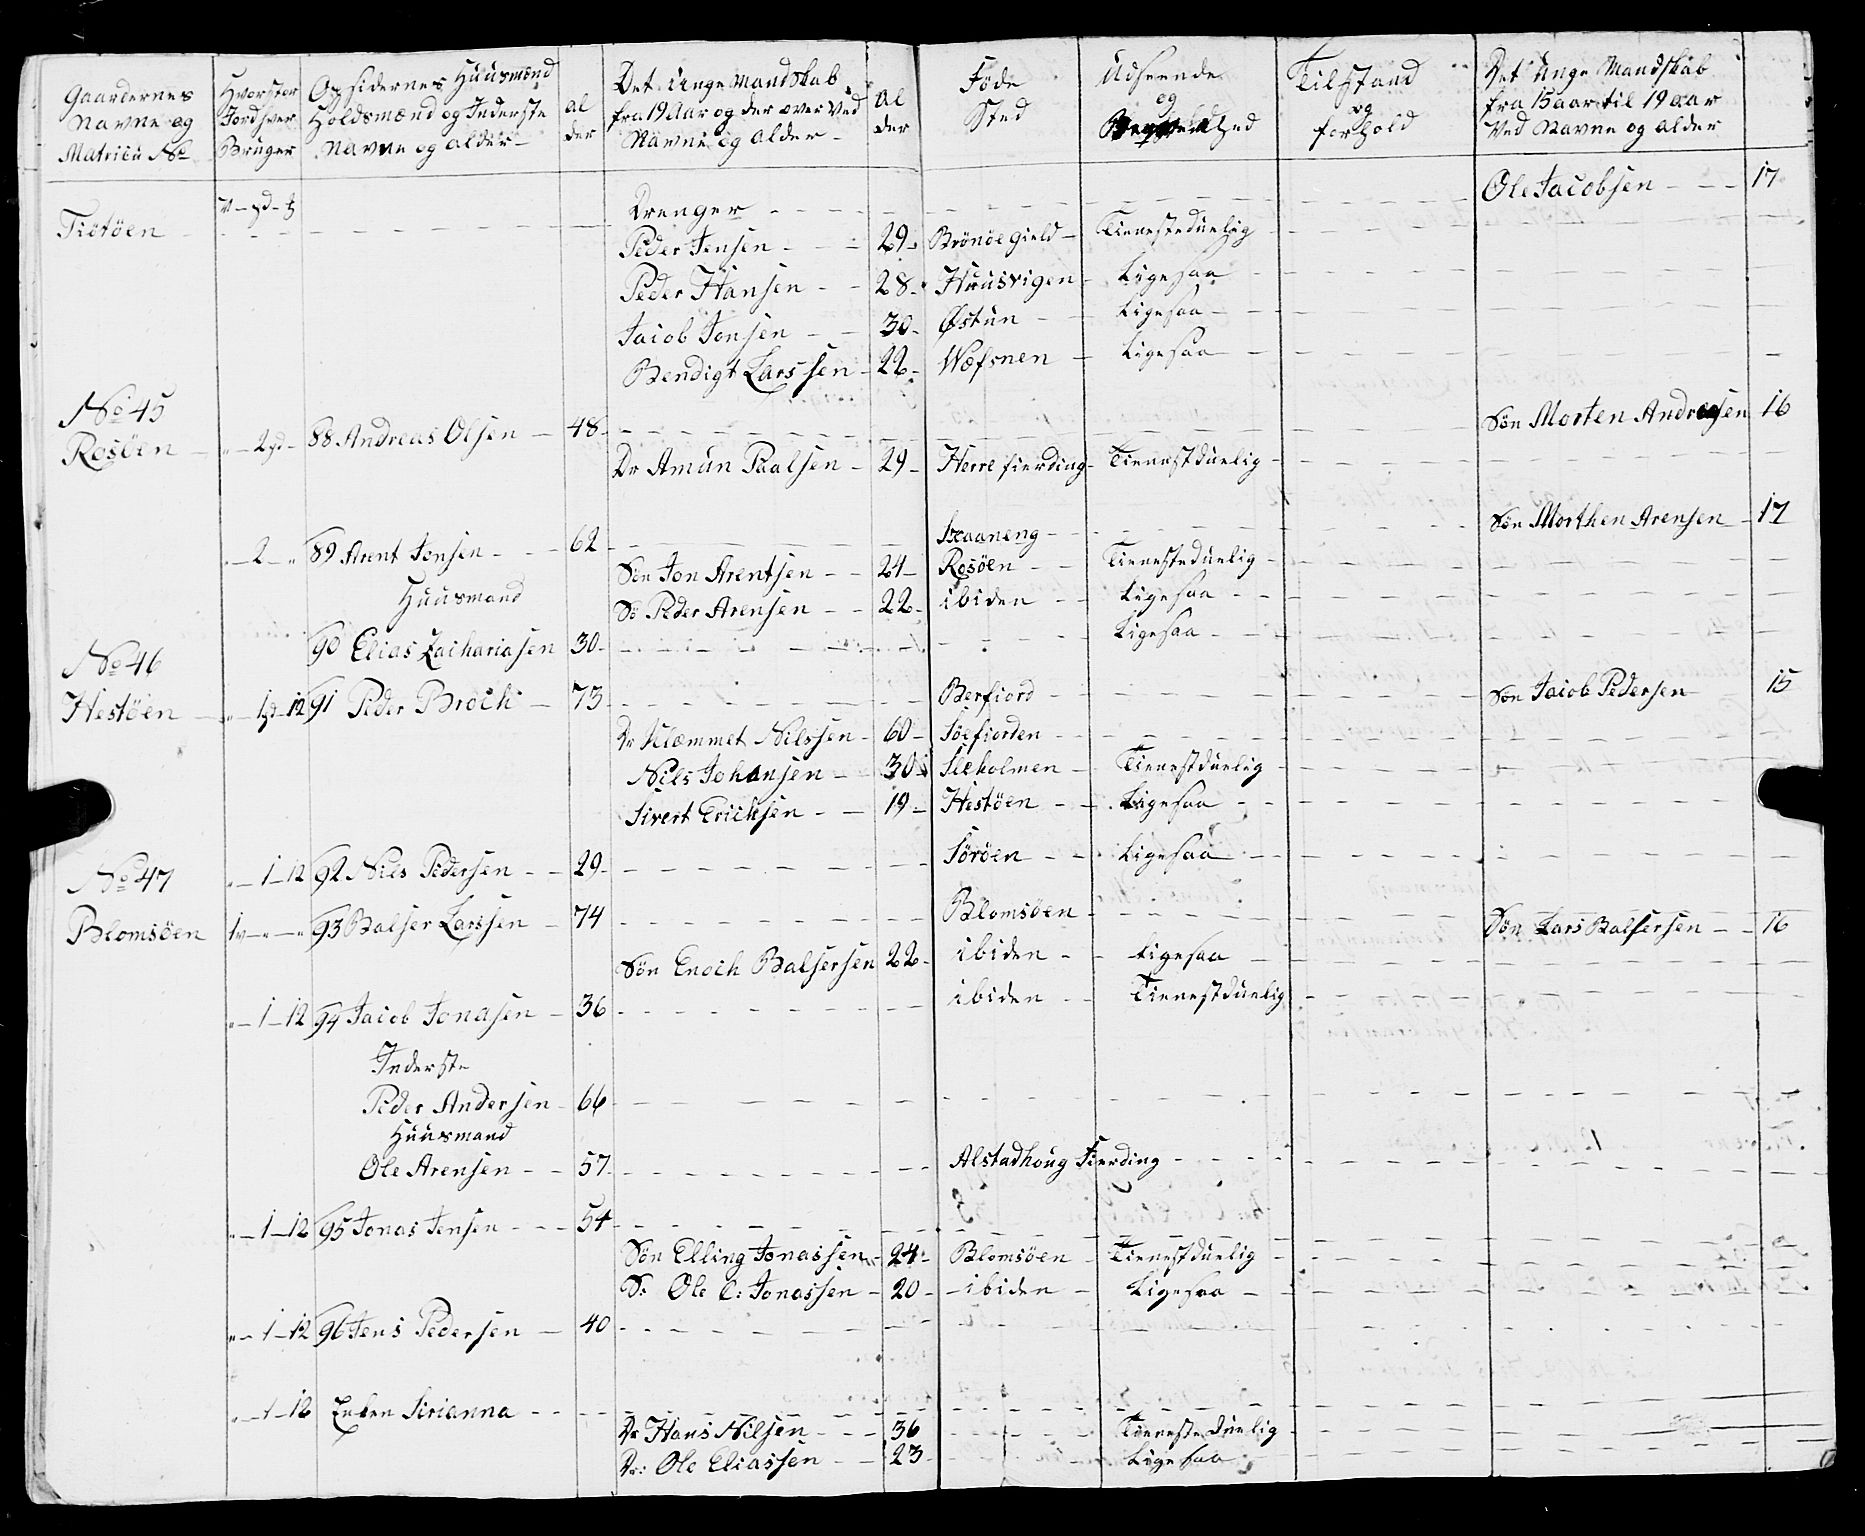 Gaardernes Navne og Matricu No
Hvorstor Jordhver Bruger
Opsidernes Huusmænd Holdsmænd og Inderste Navne og alder
al der
Det Unge Mandskab fra 19 Aar og der over Ved Navne og Alder
al der
Føde Sted
Udseende og
Tilstand og forhold
Det Unge Mandskab fra 15 aar til 19 aar Ved Navne og alder
Ole Jacobsen 17
Drenger
Tiøtöen
Peder Jensen 29 Brönöe Gield Tienesteduelig
Peder Hansen 28 Huusvigen Ligesaa
Jacob Jonsen 30 Østun Ligesaa
Bendigt Larssen 22 Wefsnen Ligesaa
No 45
Rosöen 2 88 Andreas Olsen 48 Søn Morten Andreasen 16
Dr Amun Paalsen 29 Herrefierding Tienestduelig
2 89 Arent Jonsen 62 Søn Morthen Arensen 17
Søn Jon Arentsen 24 Rosöen Tienesteduelig
Huusmand
Sö Peder Arensen 22 ibiden Ligesaa
90 Elias Zachariasen 30 Ligesaa
No 46
Hestöen 1 12 91 Peder Broch 73 Berfiord Søn Jacob Pedersen 15
Dr Klemmet Nilssen 60 Söefiorden
Nils Johansen 30 Tienestduelig
Sivert Erichsen 19 Hestöen Ligesaa
No 47
1 12 92 Nils Pedersen 29 Söröen Ligesaa
Blomsöen 1v 93 Balser Larssen 74 Blomsöen Søn Lars Balsersen 16
Søn Enoch Balsersen 22 ibiden Ligesaa
1 12 94 Jacob Jonasen 36 ibiden Tienestduelig
Inderste
Peder Andersen 66
Huusmand
Ole Arensen 57 Alstadhoug Fierding
1 12 95 Jonas Jensen 54
Søn Elling Jonassen 24 Blomsöen Tienestduelig
S: Ole C: Jonassen 20 ibiden Ligesaa
1 12 96 Jens Pedersen 40
1 12 Enken Sirianna
Dr Hans Nilsen 36 Tienesteduelig
Dr: Ole Eliassen 23 Ligesaa